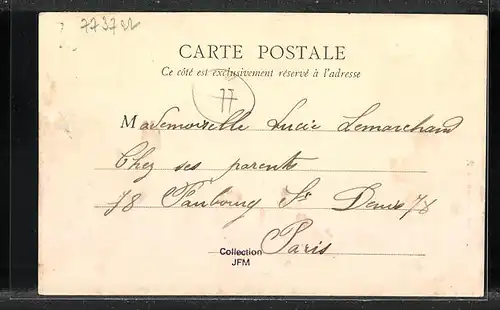 773792
CARTE POSTALE
Ce côté est exclusivement réservé à l'adresse
77
Mademoiselle Lucie Lemarchand
Chez ses parents
78 Faubourg St Denis 78
Paris
Collection
JFM